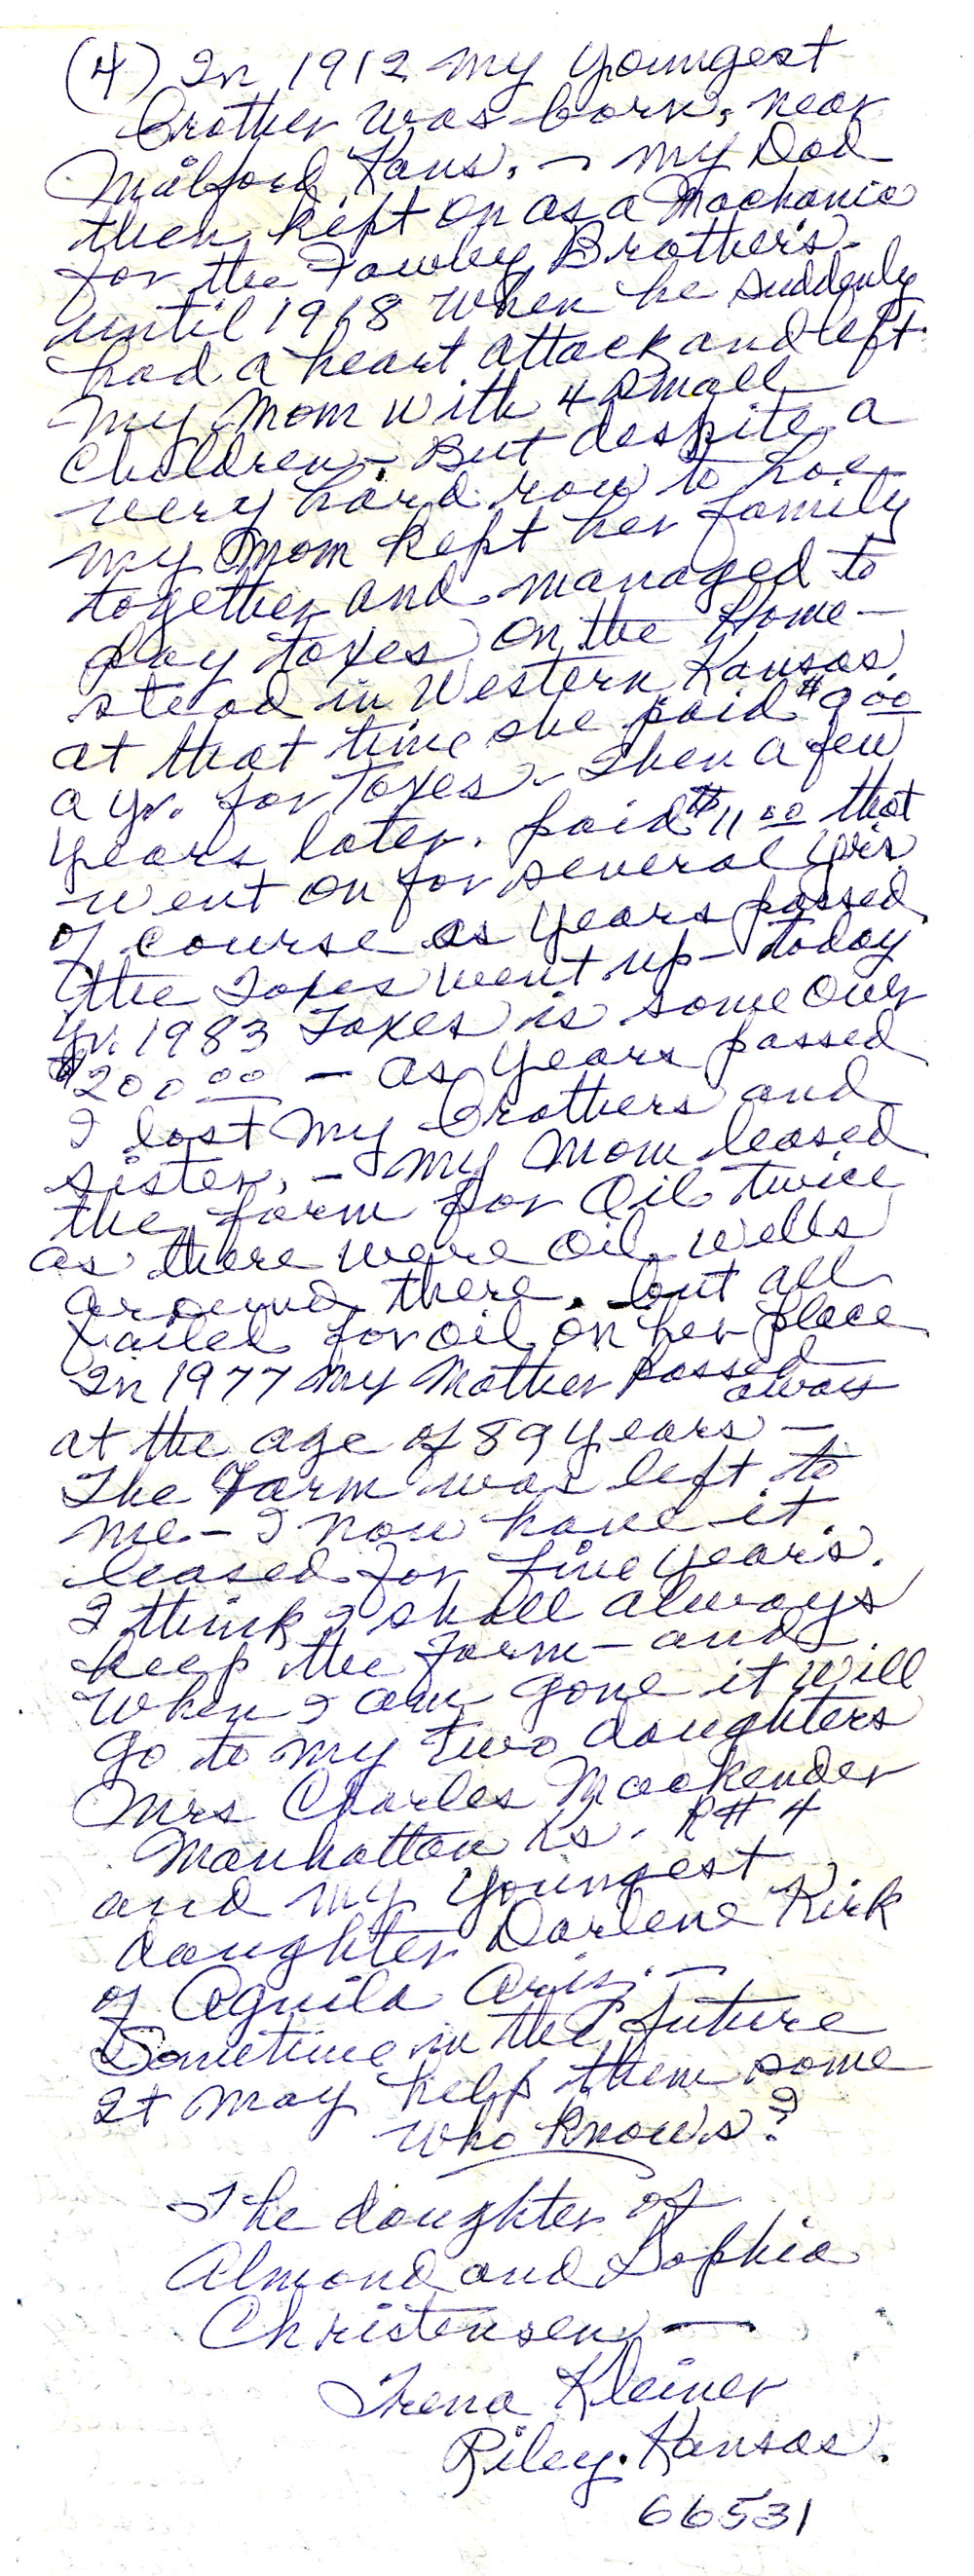 (4) In 1912 my youngest
brother was born, near
Milford, Kans. - my Dad
then kept on as a Mechanic
for the Fawley Brothers -
until 1918 when he suddenly
had a heart attack and left
my Mom with 4 small
children - But despite a
very hard row to hoe
my Mom kept her family
together and managed to
pay taxes on the Home-
stead in Western Kansas.
at that time she paid $9.00
a yr. for Taxes - Then a few
years later. paid $11.00 that
went on for several yrs.
of course as years passed
the Taxes went up - today
yr. 1983 Taxes is some over
$200.00 - as years passed
I lost my brothers and
sister, - my Mom leased
the farm for Oil twice
as there were oil wells
around there. but all
failed for oil on her place
In 1977 my Mother passed
away
at the age of 89 years -
The Farm was left to
me - I now have it
leased for five years.
I think I shall always
keep the Farm - and
when I am gone it will
go to my two daughters
Mrs Charles Mackender
Manhattan Ks. R# 4
and my youngest
daughter Darlene Kirk
of Aguila Ariz. -
Sometime in the future
It may help them some
who knows?
The daughter of
Almond and Sophia
Christensen -
Irena Kleiner
Riley. Kansas.
66531